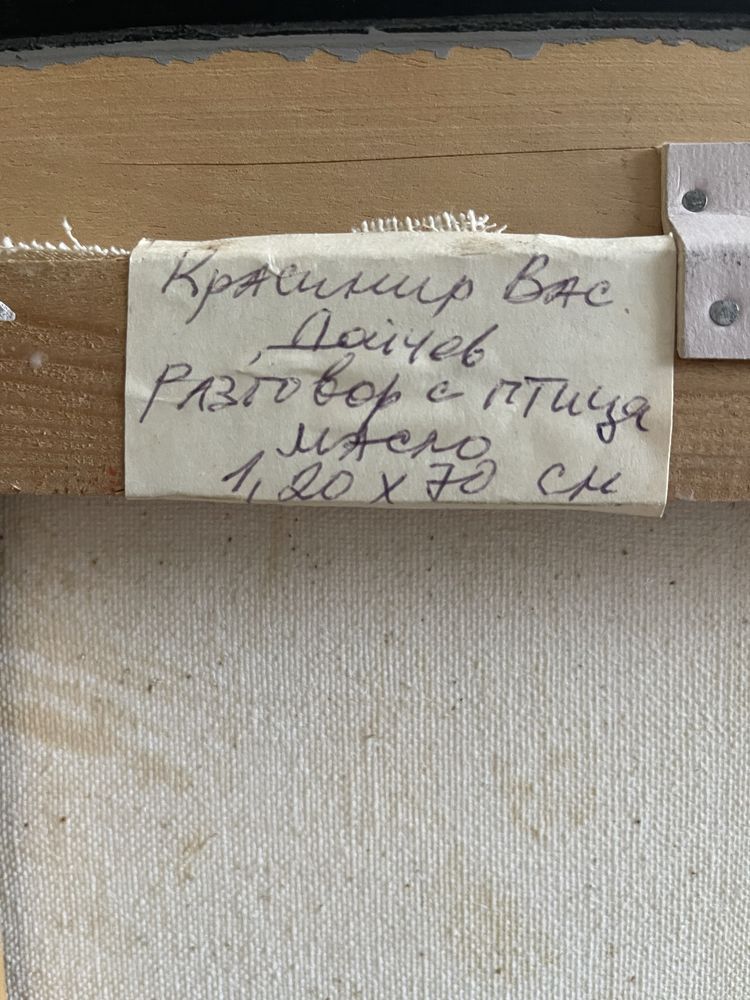 Красимир Вас.
Дойчев
Разговор с птица
масло
1,20 x 70 см